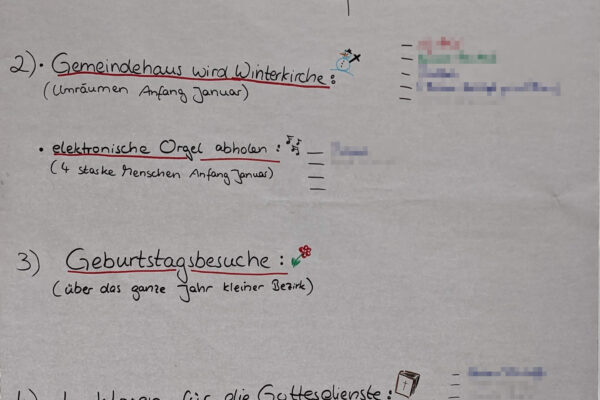 2) • Gemeindehaus wird Winterkirche:
(Umräumen Anfang Januar)
• elektronische Orgel abholen :
(4 starke Menschen Anfang Januar)
3) Geburtstagsbesuche :
(über das ganze Jahr kleiner Bezirk)
für die Gottesdienste :